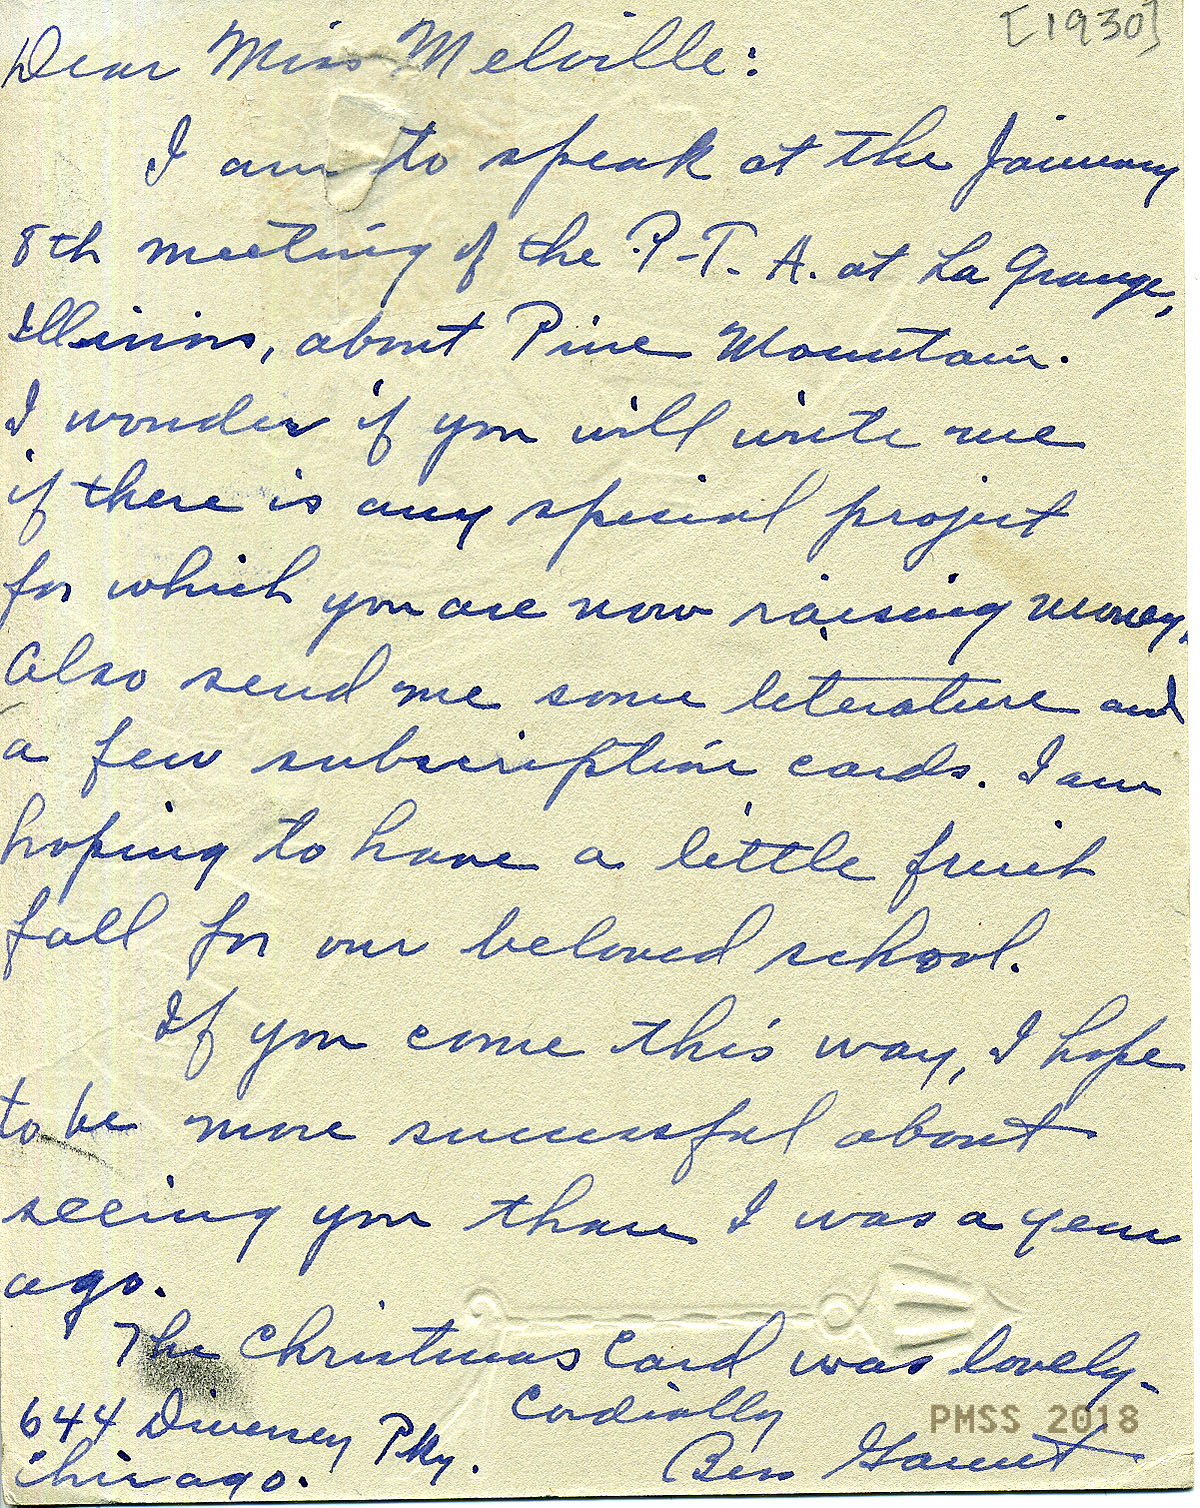 [1930]
Dear Miss Melville:
I am to speak at the January
8th meeting of the P-T. A. at La Grange,
Illinois, about Pine Mountain.
I wonder if you will write me
if there is any special project
for which you are now raising money.
Also send me some literature and
a few subscription cards. I am
hoping to have a little fruit
fall for our beloved school.
If you come this way, I hope
to be more successful about
seeing you than I was a year
ago.
The Christmas Card was lovely.
Cordially
644 Diversey Pky.
Chicago.
Ben
PMSS 2018